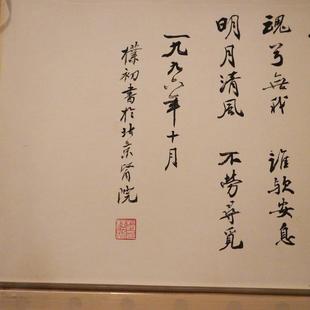 魂兮無我 誰歟安息
明月清風 不勞尋覓
一九九六年十月
樸初書於北京醫院